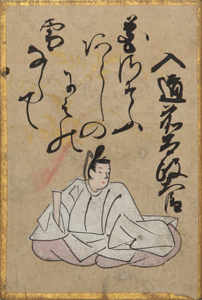 入道前太政大臣
花さそふ
あらしの
にはの
雪ならて